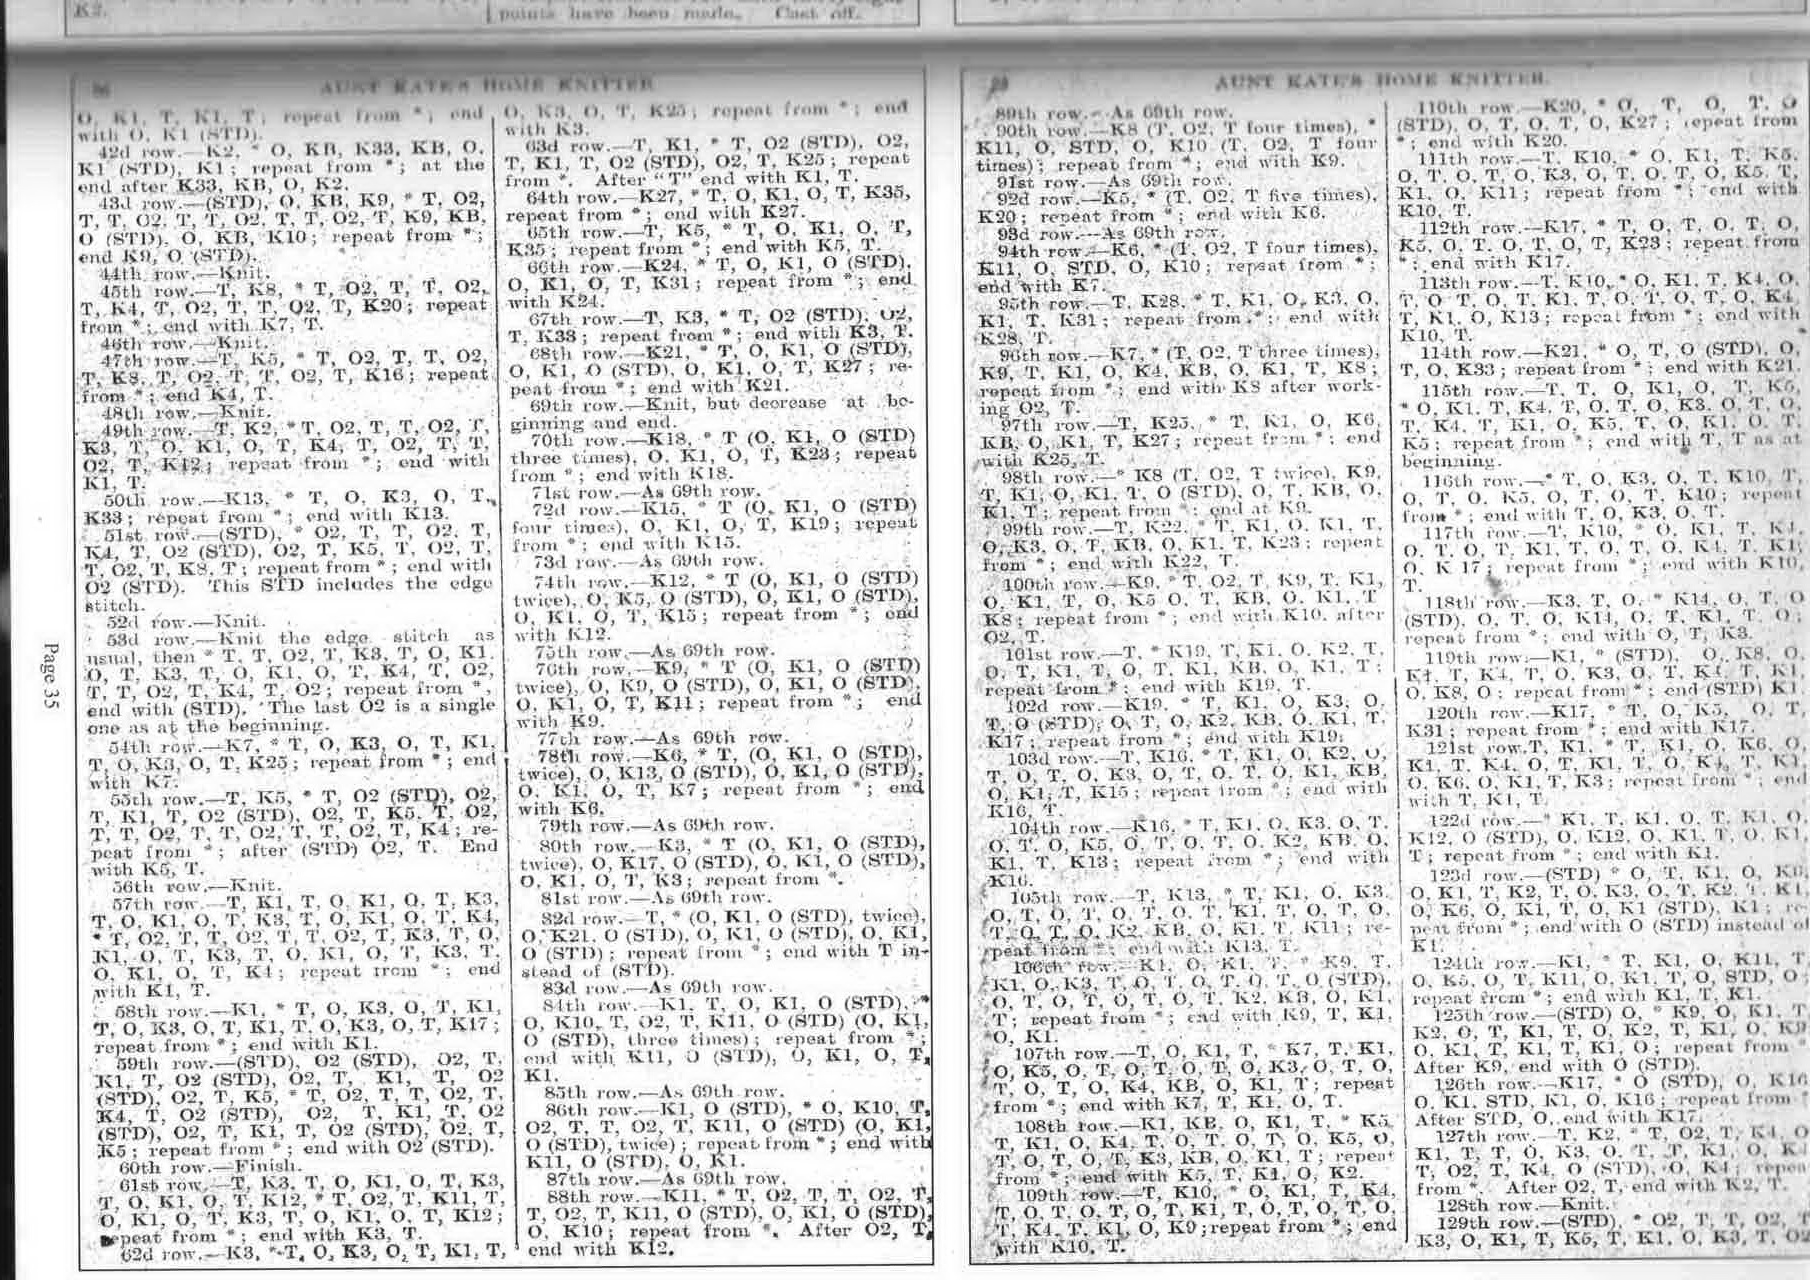 K2.
points have been made. Cast off.
AUNT KATE'S HOME KNITTER
O, K1, T, K1, T; repeat from *; end
with O, K1 (STD).
42d row.—K2, * O, KB, K33, KB, O,
K1 (STD), K1; repeat from *; at the
end after K33, KB, O, K2.
43d row.—(STD), O, KB, K9, * T, O2,
T, T, O2, T, T, O2, T, T, O2, T, K9, KB,
O (STD), O, KB, K10; repeat from *;
end K9, O (STD).
44th row.—Knit.
45th row.—T, K8, * T, O2, T, T, O2,
T, K4, T, O2, T, T, O2, T, K20; repeat
from *; end with K7, T.
46th row.—Knit.
47th row.—T, K5, * T, O2, T, T, O2,
T, K8, T, O2, T, T, O2, T, K16; repeat
from *; end K4, T.
48th row.—Knit.
49th row.—T, K2, * T, O2, T, T, O2, T,
K3, T, O, K1, O, T, K4, T, O2, T, T,
O2, T, K12; repeat from *; end with
K1, T.
50th row.—K13, * T, O, K3, O, T,
K33; repeat from *; end with K13.
51st row.—(STD), * O2, T, T, O2, T,
K4, T, O2 (STD), O2, T, K5, T, O2, T,
T, O2, T, K8, T; repeat from *; end with
O2 (STD). This STD includes the edge
stitch.
52d row.—Knit.
53d row.—Knit the edge stitch as
usual, then * T, T, O2, T, K3, T, O, K1,
O, T, K3, T, O, K1, O, T, K4, T, O2,
T, T, O2, T, K4, T, O2; repeat from *,
end with (STD). The last O2 is a single
one as at the beginning.
54th row.—K7, * T, O, K3, O, T, K1,
T, O, K3, O, T, K25; repeat from *; end
with K7.
55th row.—T, K5, * T, O2 (STD), O2,
T, K1, T, O2 (STD), O2, T, K5, T, O2,
T, T, O2, T, T, O2, T, T, O2, T, K4; re-
peat from *; after (STD) O2, T. End
with K5, T.
56th row.—Knit.
57th row.—T, K1, T, O, K1, O, T, K3,
T, O, K1, O, T, K3, T, O, K1, O, T, K4,
* T, O2, T, T, O2, T, T, O2, T, K3, T, O,
K1, O, T, K3, T, O, K1, O, T, K3, T,
O, K1, O, T, K4; repeat from *; end
with K1, T.
58th row.—K1, * T, O, K3, O, T, K1,
T, O, K3, O, T, K1, T, O, K3, O, T, K17;
repeat from *; end with K1.
59th row.—(STD), O2 (STD), O2, T,
K1, T, O2 (STD), O2, T, K1, T, O2
(STD), O2, T, K5, * T, O2, T, T, O2, T,
K4, T, O2 (STD), O2, T, K1, T, O2
(STD), O2, T, K1, T, O2 (STD), O2, T,
K5; repeat from *; end with O2 (STD).
60th row.—Finish.
61st row.—T, K3, T, O, K1, O, T, K3,
T, O, K1, O, T, K12, * T, O2, T, K11, T,
O, K1, O, T, K3, T, O, K1, O, T, K12;
repeat from *; end with K3, T.
62d row.—K3, * T, O, K3, O, T, K1, T,
O, K3, O, T, K25; repeat from *; end
with K3.
63d row.—T, K1, * T, O2 (STD), O2,
T, K1, T, O2 (STD), O2, T, K25; repeat
from *. After "T" end with K1, T.
64th row.—K27, * T, O, K1, O, T, K35,
repeat from *; end with K27.
65th row.—T, K5, * T, O, K1, O, T,
K35; repeat from *; end with K5, T.
66th row.—K24, * T, O, K1, O (STD),
O, K1, O, T, K31; repeat from *; end
with K24.
67th row.—T, K3, * T, O2 (STD), O2,
T, K33; repeat from *; end with K3, T.
68th row.—K21, * T, O, K1, O (STD),
O, K1, O (STD), O, K1, O, T, K27; re-
peat from *; end with K21.
69th row.—Knit, but decrease at be-
ginning and end.
70th row.—K18, * T (O, K1, O (STD)
three times), O, K1, O, T, K23; repeat
from *; end with K18.
71st row.—As 69th row.
72d row.—K15, * T (O, K1, O (STD)
four times), O, K1, O, T, K19; repeat
from *; end with K15.
73d row.—As 69th row.
74th row.—K12, * T (O, K1, O (STD)
twice), O, K5, O (STD), O, K1, O (STD),
O, K1, O, T, K15; repeat from *; end
with K12.
75th row.—As 69th row.
76th row.—K9, * T (O, K1, O (STD)
twice), O, K9, O (STD), O, K1, O (STD),
O, K1, O, T, K11; repeat from *; end
with K9.
77th row.—As 69th row.
78th row.—K6, * T, (O, K1, O (STD),
twice), O, K13, O (STD), O, K1, O (STD),
O, K1, O, T, K7; repeat from *; end
with K6.
79th row.—As 69th row.
80th row.—K3, * T (O, K1, O (STD),
twice), O, K17, O (STD), O, K1, O (STD),
O, K1, O, T, K3; repeat from *.
81st row.—As 69th row.
82d row.—T, * (O, K1, O (STD), twice),
O, K21, O (STD), O, K1, O (STD), O, K1,
O (STD); repeat from *; end with T in-
stead of (STD).
83d row.—As 69th row.
84th row.—K1, T, O, K1, O (STD), *
O, K10, T, O2, T, K11, O (STD) (O, K1,
O (STD), three times); repeat from *;
end with K11, O (STD), O, K1, O, T,
K1.
85th row.—As 69th row.
86th row.—K1, O (STD), * O, K10, T,
O2, T, T, O2, T, K11, O (STD) (O, K1,
O (STD), twice); repeat from *; end with
K11, O (STD), O, K1.
87th row.—As 69th row.
88th row.—K11, * T, O2, T, T, O2, T,
T, O2, T, K11, O (STD), O, K1, O (STD),
O, K10; repeat from *. After O2, T,
end with K12.
Page 35
AUNT KATE'S HOME KNITTER.
89th row.—As 69th row.
90th row.—K8 (T, O2, T four times), *
K11, O, STD, O, K10 (T, O2, T four
times); repeat from *; end with K9.
91st row.—As 69th row.
92d row.—K5, * (T, O2, T five times),
K20; repeat from *; end with K6.
93d row.—As 69th row.
94th row.—K6, * (T, O2, T four times),
K11, O, STD, O, K10; repeat from *;
end with K7.
95th row.—T, K28, * T, K1, O, K3, O,
K1, T, K31; repeat from *; end with
K28, T.
96th row.—K7, * (T, O2, T three times),
K9, T, K1, O, K4, KB, O, K1, T, K8;
repeat from *; end with K8 after work-
ing O2, T.
97th row.—T, K25, * T, K1, O, K6,
KB, O, K1, T, K27; repeat from *; end
with K25, T.
98th row.—* K8 (T, O2, T twice), K9,
T, K1, O, K1, T, O (STD), O, T, KB, O,
K1, T; repeat from *; end at K9.
99th row.—T, K22, * T, K1, O, K1, T,
O, K3, O, T, KB, O, K1, T, K23; repeat
from *; end with K22, T.
100th row.—K9, * T, O2, T, K9, T, K1,
O, K1, T, O, K5 O, T, KB, O, K1, T
K8; repeat from *; end with K10, after
O2, T.
101st row.—T, * K19, T, K1, O, K2, T,
O, T, K1, T, O, T, K1, KB, O, K1, T;
repeat from *; end with K19, T.
102d row.—K19, * T, K1, O, K3, O,
T, O (STD), O, T, O, K2, KB, O, K1, T,
K17; repeat from *; end with K19.
103d row.—T, K16, * T, K1, O, K2, O,
T, O, T, O, K3, O, T, O, T, O, K1, KB,
O, K1, T, K15; repeat from *; end with
K16, T.
104th row.—K16, * T, K1, O, K3, O, T,
O, T, O, K5, O, T, O, T, O, K2, KB, O,
K1, T, K13; repeat from *; end with
K16.
105th row.—T, K13, * T, K1, O, K3,
O, T, O, T, O, T, O, T, K1, T, O, T, O,
T, O, T, O, K2, KB, O, K1, T, K11; re-
peat from *; end with K13, T.
106th row.—K1, O, K1, T, * K9, T,
K1, O, K3, T, O, T, O, T, O, T, O (STD),
O, T, O, T, O, T, O, T, K2, KB, O, K1,
T; repeat from *; end with K9, T, K1,
O, K1.
107th row.—T, O, K1, T, * K7, T, K1,
O, K5, O, T, O, T, O, T, O, K3, O, T, O,
T, O, T, O, K4, KB, O, K1, T; repeat
from *; end with K7, T, K1, O, T.
108th row.—K1, KB, O, K1, T, * K5,
T, K1, O, K4, T, O, T, O, T, O, K5, O,
T, O, T, O, T, K3, KB, O, K1, T; repeat
from *; end with K5, T, K1, O, K2.
109th row.—T, K10, * O, K1, T, K4,
T, O, T, O, T, O, T, K1, T, O, T, O, T, O,
T, K4, T, K1, O, K9; repeat from *; end
with K10, T.
110th row.—K20, * O, T, O, T, O
(STD), O, T, O, T, O, K27; repeat from
*; end with K20.
111th row.—T, K10, * O, K1, T, K5,
O, T, O, T, O, K3, O, T, O, T, O, K5, T,
K1, O, K11; repeat from *; end with
K10, T.
112th row.—K17, * T, O, T, O, T, O,
K5, O, T, O, T, O, T, K23; repeat from
*; end with K17.
113th row.—T, K10, * O, K1, T, K4, O,
T, O T, O, T, K1, T, O, T, O, T, O, K4,
T, K1, O, K13; repeat from *; end with
K10, T.
114th row.—K21, * O, T, O (STD), O,
T, O, K33; repeat from *; end with K21.
115th row.—T, T, O, K1, O, T, K5,
* O, K1, T, K4, T, O, T, O, K3, O, T, O,
T, K4, T, K1, O, K5, T, O, K1, O, T,
K5; repeat from *; end with T, T as at
beginning.
116th row.—* T, O, K3, O, T, K10, T,
O, T, O, K5, O, T, O, T, K10; repeat
from *; end with T, O, K3, O, T.
117th row.—T, K10, * O, K1, T, K4,
O, T, O, T, K1, T, O, T, O, K4, T, K1,
O, K 17; repeat from *; end with K10,
T.
118th row.—K3, T, O, * K14, O, T, O
(STD), O, T, O, K14, O, T, K1, T, O;
repeat from *; end with O, T, K3.
119th row.—K1, * (STD), O, K8, O,
K1, T, K4, T, O, K3, O, T, K4, T, K1,
O, K8, O; repeat from *; end (STD) K1.
120th row.—K17, * T, O, K5, O, T,
K31; repeat from *; end with K17.
121st row.T, K1, * T, K1, O, K6, O,
K1, T, K4, O, T, K1, T, O, K4, T, K1,
O, K6, O, K1, T, K3; repeat from *; end
with T, K1, T.
122d row.—* K1, T, K1, O, T, K1, O,
K12, O (STD), O, K12, O, K1, T, O, K1,
T; repeat from *; end with K1.
123d row.—(STD) * O, T, K1, O, K6,
O, K1, T, K2, T, O, K3, O, T, K2, T, K1,
O, K6, O, K1, T, O, K1 (STD), K1; re-
peat from *; end with O (STD) instead of
K1.
124th row.—K1, * T, K1, O, K11, T,
O, K5, O, T, K11, O, K1, T, O, STD, O;
repeat from *; end with K1, T, K1.
125th row.—(STD) O, * K9, O, K1, T,
K2, O, T, K1, T, O, K2, T, K1, O, K9
O, K1, T, K1, T, K1, O; repeat from *
After K9, end with O (STD).
126th row.—K17, * O (STD), O, K16
O, K1, STD, K1, O, K16; repeat from *
After STD, O, end with K17.
127th row.—T, K2, * T, O2, T, K4, O
K1, T, T, O, K3, O, T, T, K1, O, K4
T, O2, T, K4, O (STD), O, K4; repeat
from *. After O2, T, end with K2, T.
128th row.—Knit.
129th row.—(STD), * O2, T, T, O2, T
K3, O, K1, T, K5, T, K1, O, K3, T, O2